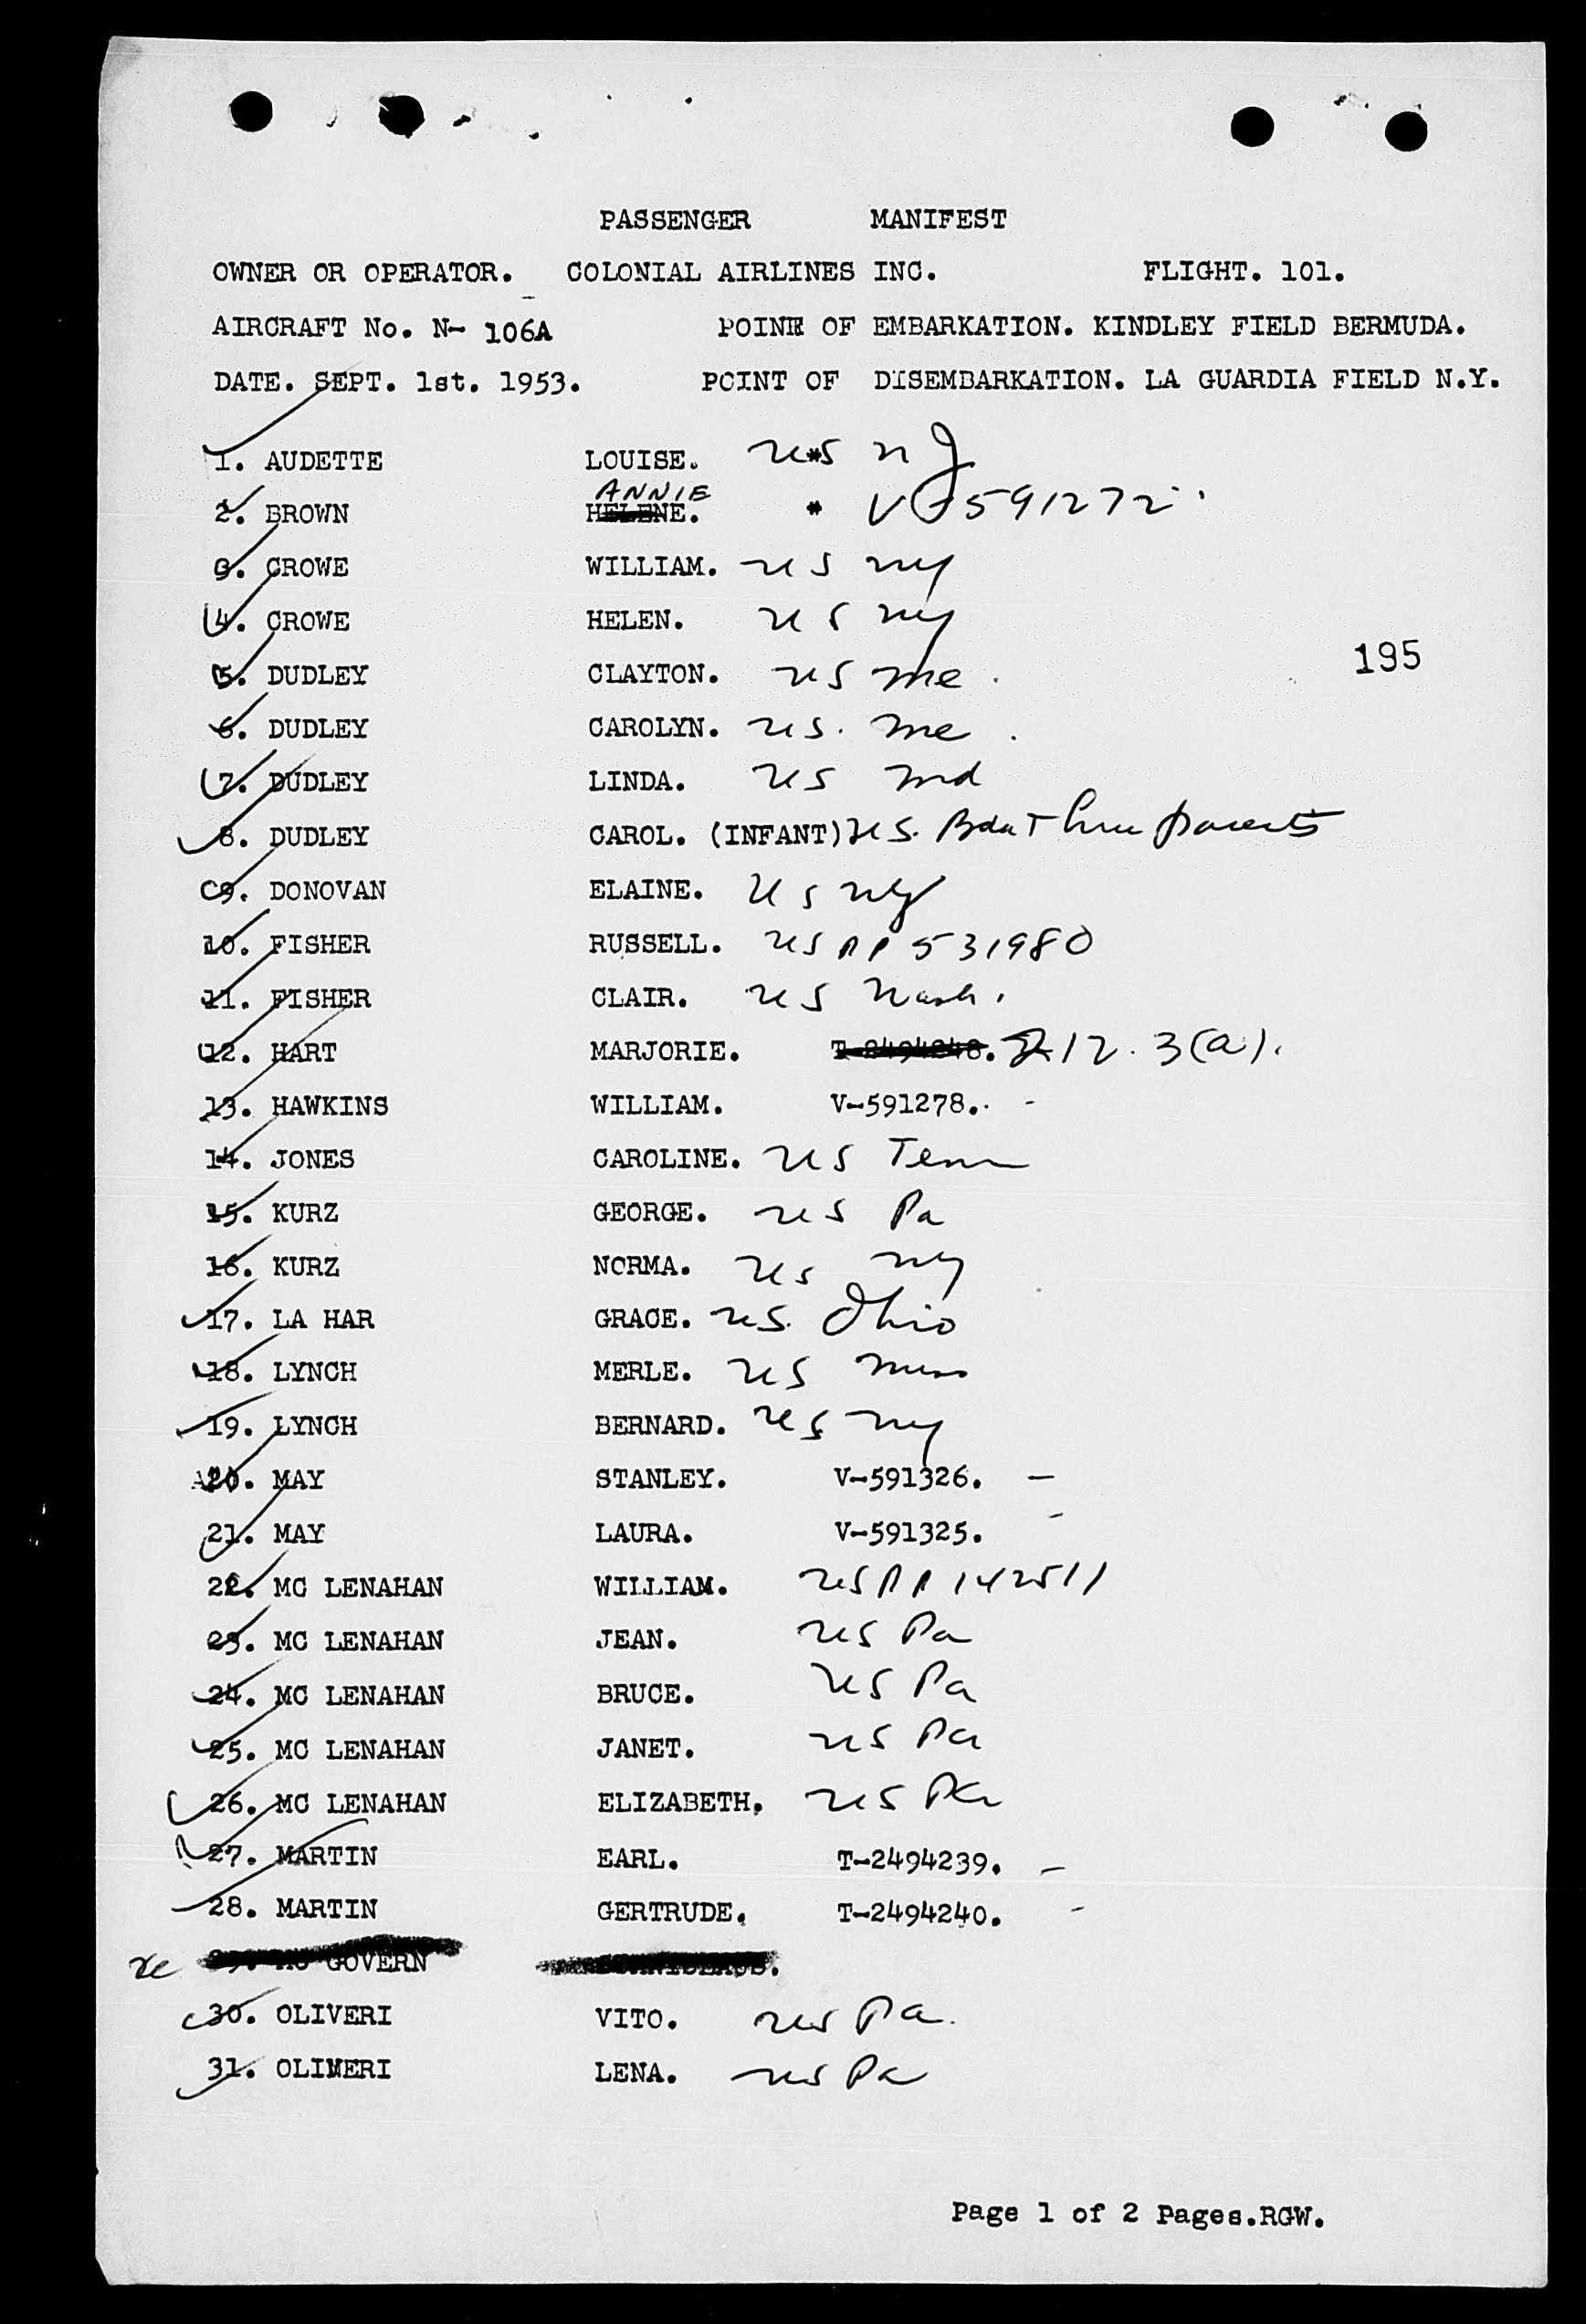 PASSENGER MANIFEST
OWNER OR OPERATOR. COLONIAL AIRLINES INC. FLIGHT. 101.
AIRCRAFT No. N- 106A POINT OF EMBARKATION. KINDLEY FIELD BERMUDA.
DATE. SEPT. 1st. 1953. POINT OF DISEMBARKATION. LA GUARDIA FIELD N.Y.
1. AUDETTE LOUISE. * US NJ
ANNIE
2. BROWN HELENE. * V 591272
3. CROWE WILLIAM. US NY
4. CROWE HELEN. US NY
195
5. DUDLEY CLAYTON. US Me.
6. DUDLEY CAROLYN. US. Me.
7. DUDLEY LINDA. US Md
8. DUDLEY CAROL. (INFANT) US. Bda Thru parents
9. DONOVAN ELAINE. US NY
10. FISHER RUSSELL. US PP 531980
11. FISHER CLAIR. US Wash.
12. HART MARJORIE. T-2494248. 212.3(a).
13. HAWKINS WILLIAM. V-591278. -
14. JONES CAROLINE. US Tenn
15. KURZ GEORGE. US Pa
16. KURZ NORMA. US NY
17. LA HAR GRACE. US. Ohio
18. LYNCH MERLE. US
19. LYNCH BERNARD. US NY
20. MAY STANLEY. V-591326. -
21. MAY LAURA. V-591325. -
22. MC LENAHAN WILLIAM. US PP 142511
23. MC LENAHAN JEAN. US Pa
24. MC LENAHAN BRUCE. US Pa
25. MC LENAHAN JANET. US Pa
26. MC LENAHAN ELIZABETH. US Pa
27. MARTIN EARL. T-2494239. -
28. MARTIN GERTRUDE. T-2494240. -
GOVERN
30. OLIVERI VITO. US Pa.
31. OLIMERI LENA. US Pa
Page 1 of 2 Pages.RGW.